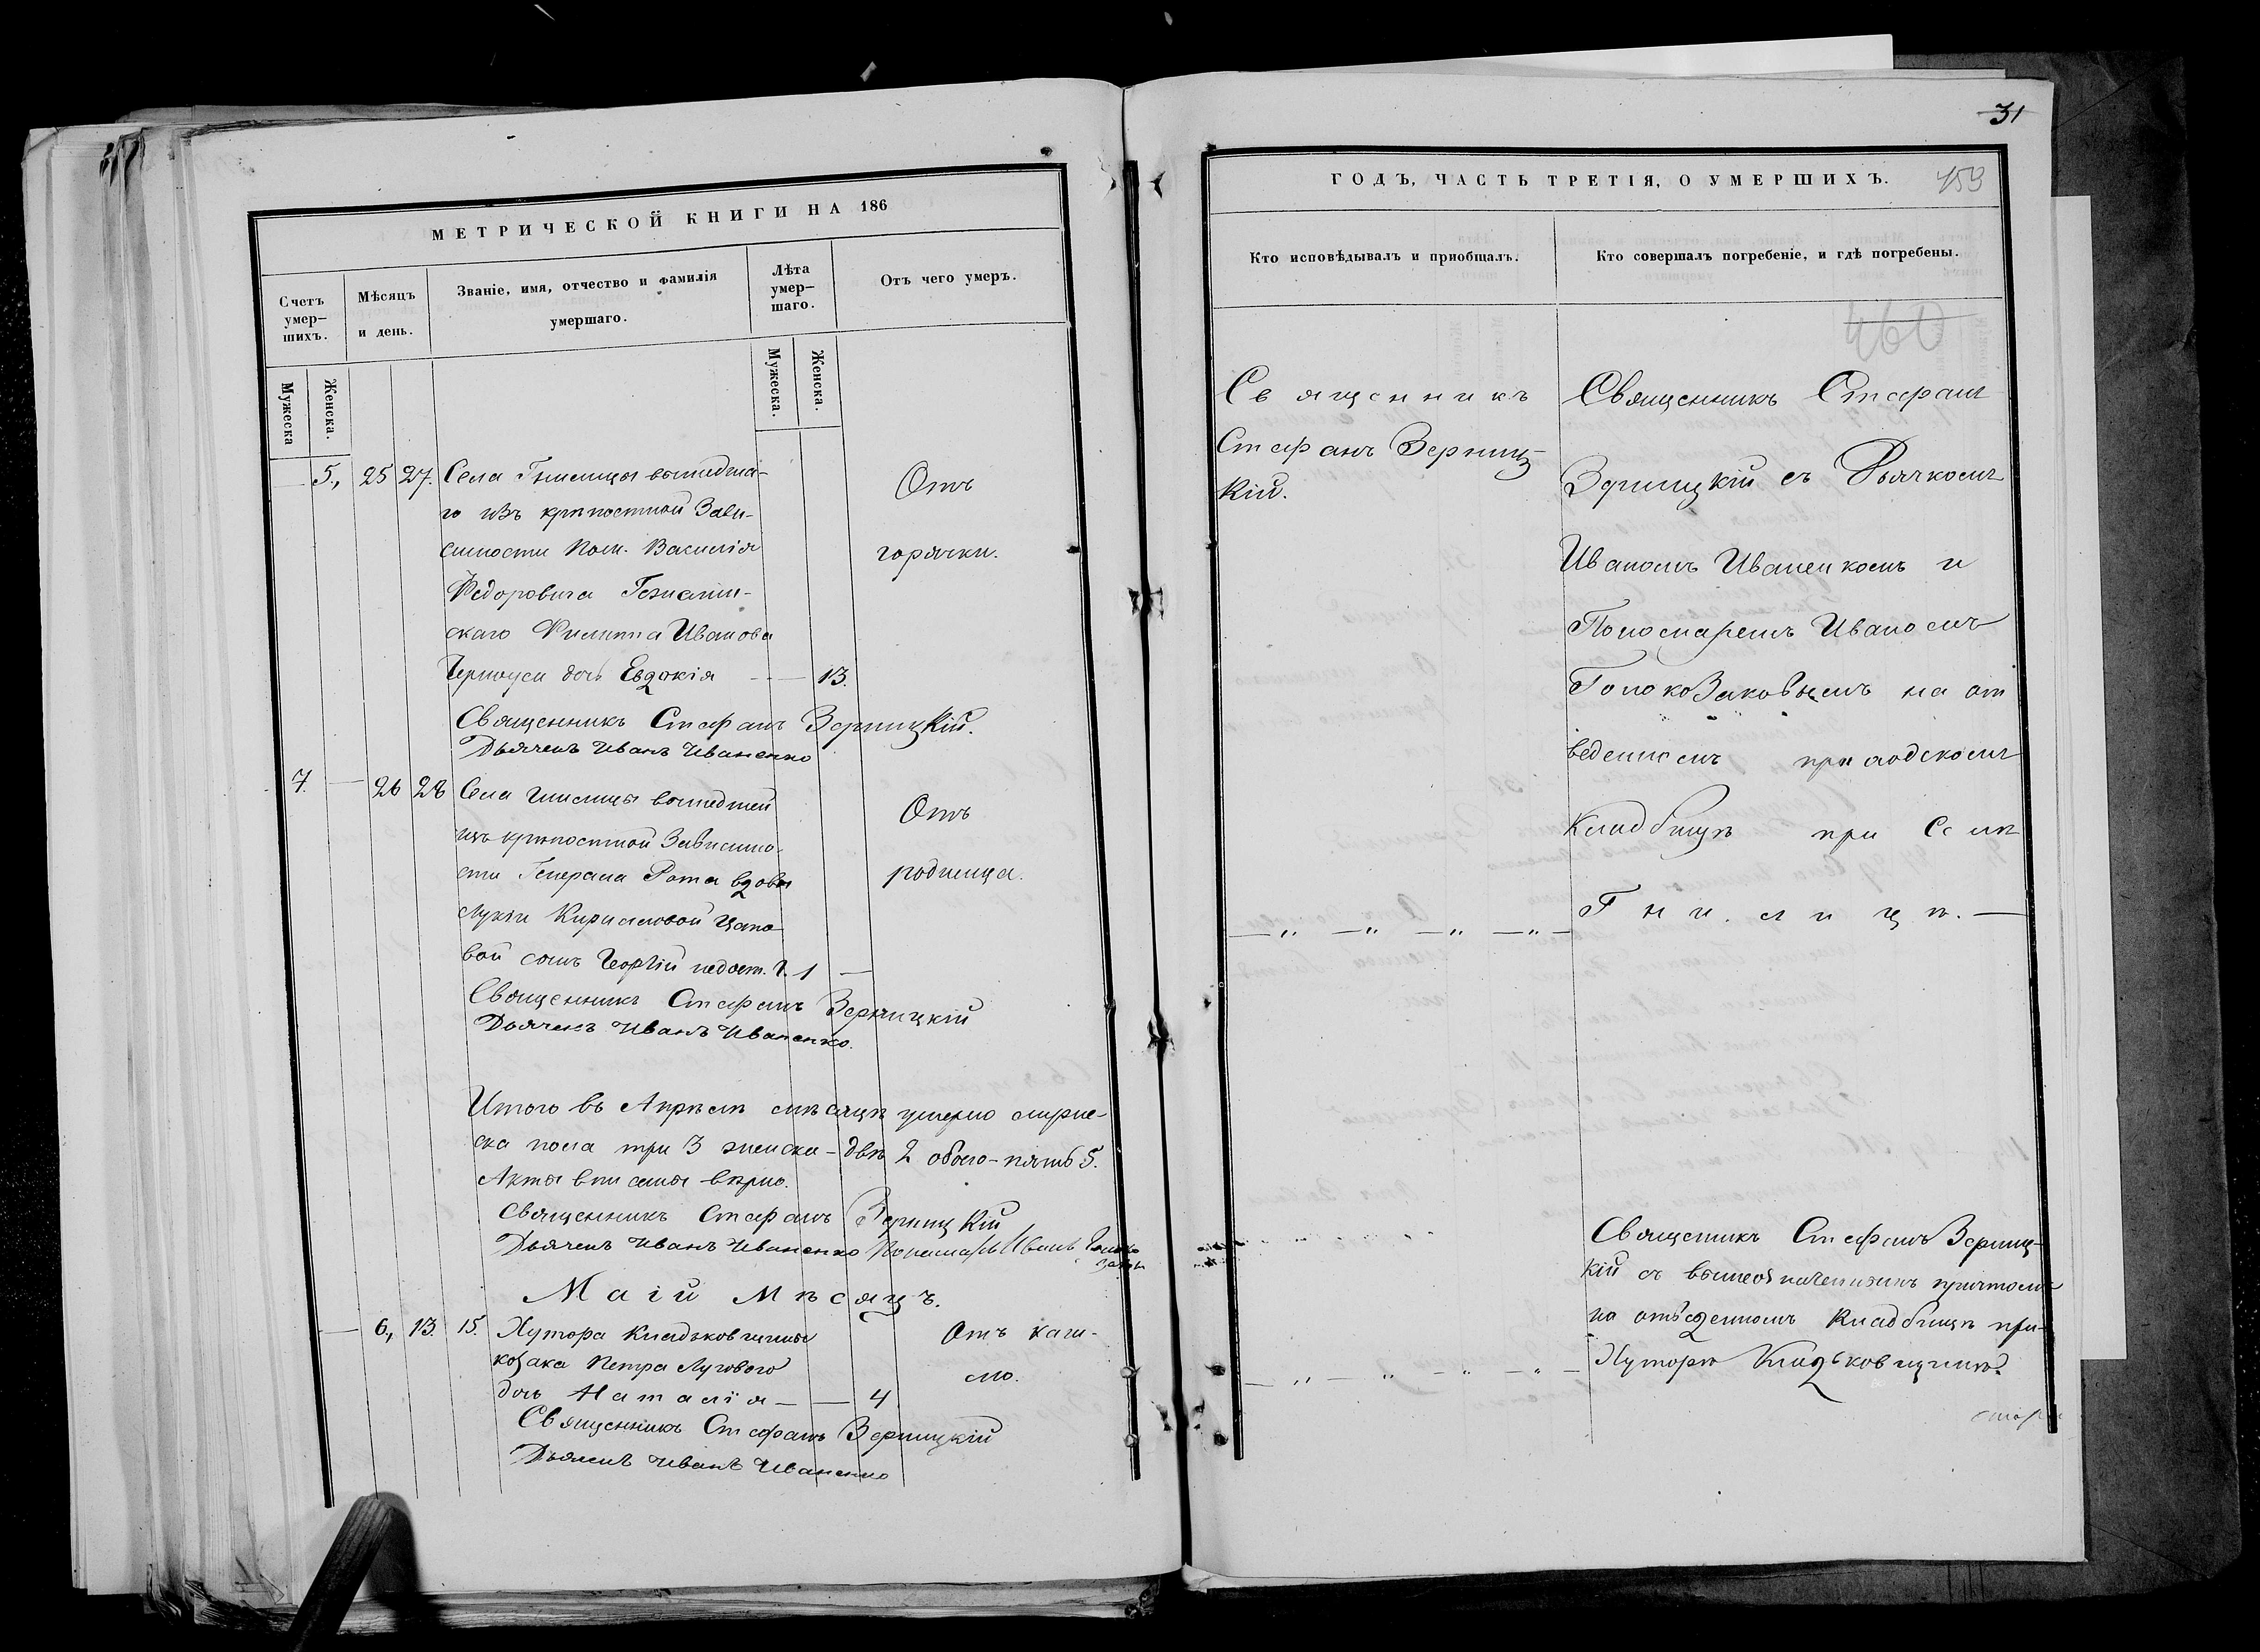 МЕТРИЧЕСКОЙ КНИГИ НА 186
Счетъ умер-
шихъ.
Мѣсяцъ
и день.
Званіе, имя, отчество и фамилія
умершаго.
Лѣта
умер-
шаго.
Отъ чего умеръ.
Мужеска
Женска.
Мужеска.
Женска.
5., 25 27. Села Гнилицы вышедша-
го изъ крѣпостной Зави-
симости Пом. Василія
Федоровича
скаго Филиппа Иванова
Черноуса дочь Евдокія — 13.
Отъ
горячки.
Священникъ Стефанъ Зерницкій.
Дьячекъ Иванъ Иваненко
7. — 26 28 Села Гнилицы вышедшей
изъ крѣпостной Зависимо-
сти Генерала Рота вдовы
Лукіи Кирилловой Цапо-
вой сынъ Георгій недост. г. 1 —
Отъ
родимца.
Священникъ Стефанъ Зерницкій
Дьячекъ Иванъ Иваненко.
Итого въ Апрѣлѣ мѣсяцѣ умерло муже-
ска пола три 3 женска - двѣ 2 обоего - пять 5.
Акты вписаны вѣрно.
Священникъ Стефанъ Зерницкій
Дьячекъ Иванъ Иваненко Пономарь Иванъ
Маій Мѣсяцъ.
— 6, 13. 15. Хутора Кладьковщины
козака Петра Лугового
дочь Наталія — — 4
Отъ каш-
лю.
Священникъ Стефанъ Зерницкій
Дьячекъ Иванъ Иваненко
31
ГОДЪ, ЧАСТЬ ТРЕТІЯ, О УМЕРШИХЪ.
159
Кто исповѣдывалъ и пріобщалъ.
Кто совершалъ погребеніе, и гдѣ погребены.
460
Священникъ
Стефанъ Зерниц-
кій.
Священникъ Стефанъ
Зерницкій съ Дьячкомъ
Иваномъ Иваненкомъ и
Пономаремъ Иваномъ
Голоказаковымъ на от
веденномъ приходскомъ
Кладбищѣ при Селѣ
Гнилицѣ. —
— „ — „ — „ — „ —
Священникъ Стефанъ Зерниц-
кій съ вышеозначеннымъ причтомъ
на отведенномъ Кладбищѣ при
Хуторѣ Кладьковщинѣ.
— „ — „ — „ — „ —